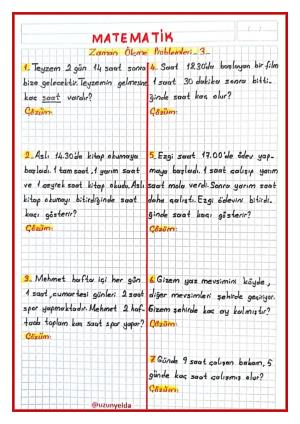 MATEMATİK
Zaman Ölçme Problemleri-3-
1. Teyzem 2 gün 14 saat sonra
bize gelecektir. Teyzemin gelmesine
kaç saat vardır?
Çözüm:
2. Aslı 14.30'da kitap okumaya
başladı. 1 tam saat, 1 yarım saat
ve 1 çeyrek saat kitap okudu. Aslı
kitap okumayı bitirdiğinde saat
kaçı gösterir?
Çözüm:
3. Mehmet hafta içi her gün
1 saat, cumartesi günleri 2 saat
spor yapmaktadır. Mehmet 2 haf-
tada toplam kaç saat spor yapar?
Çözüm:
4. Saat 12.30'da başlayan bir film
1 saat 30 dakika sonra bitti-
ğinde saat kaç olur?
Çözüm:
5. Ezgi saat 17.00'de ödev yap-
maya başladı. 1 saat çalışıp yarım
saat mola verdi. Sonra yarım saat
daha çalıştı. Ezgi ödevini bitirdi-
ğinde saat kaçı gösterir?
Çözüm:
6. Gizem yaz mevsimini köyde,
diğer mevsimleri şehirde geçiriyor.
Gizem şehirde kaç ay kalmıştır?
Çözüm:
7. Günde 9 saat çalışan babam, 5
günde kaç saat çalışmış olur?
Çözüm:
@uzunyelda